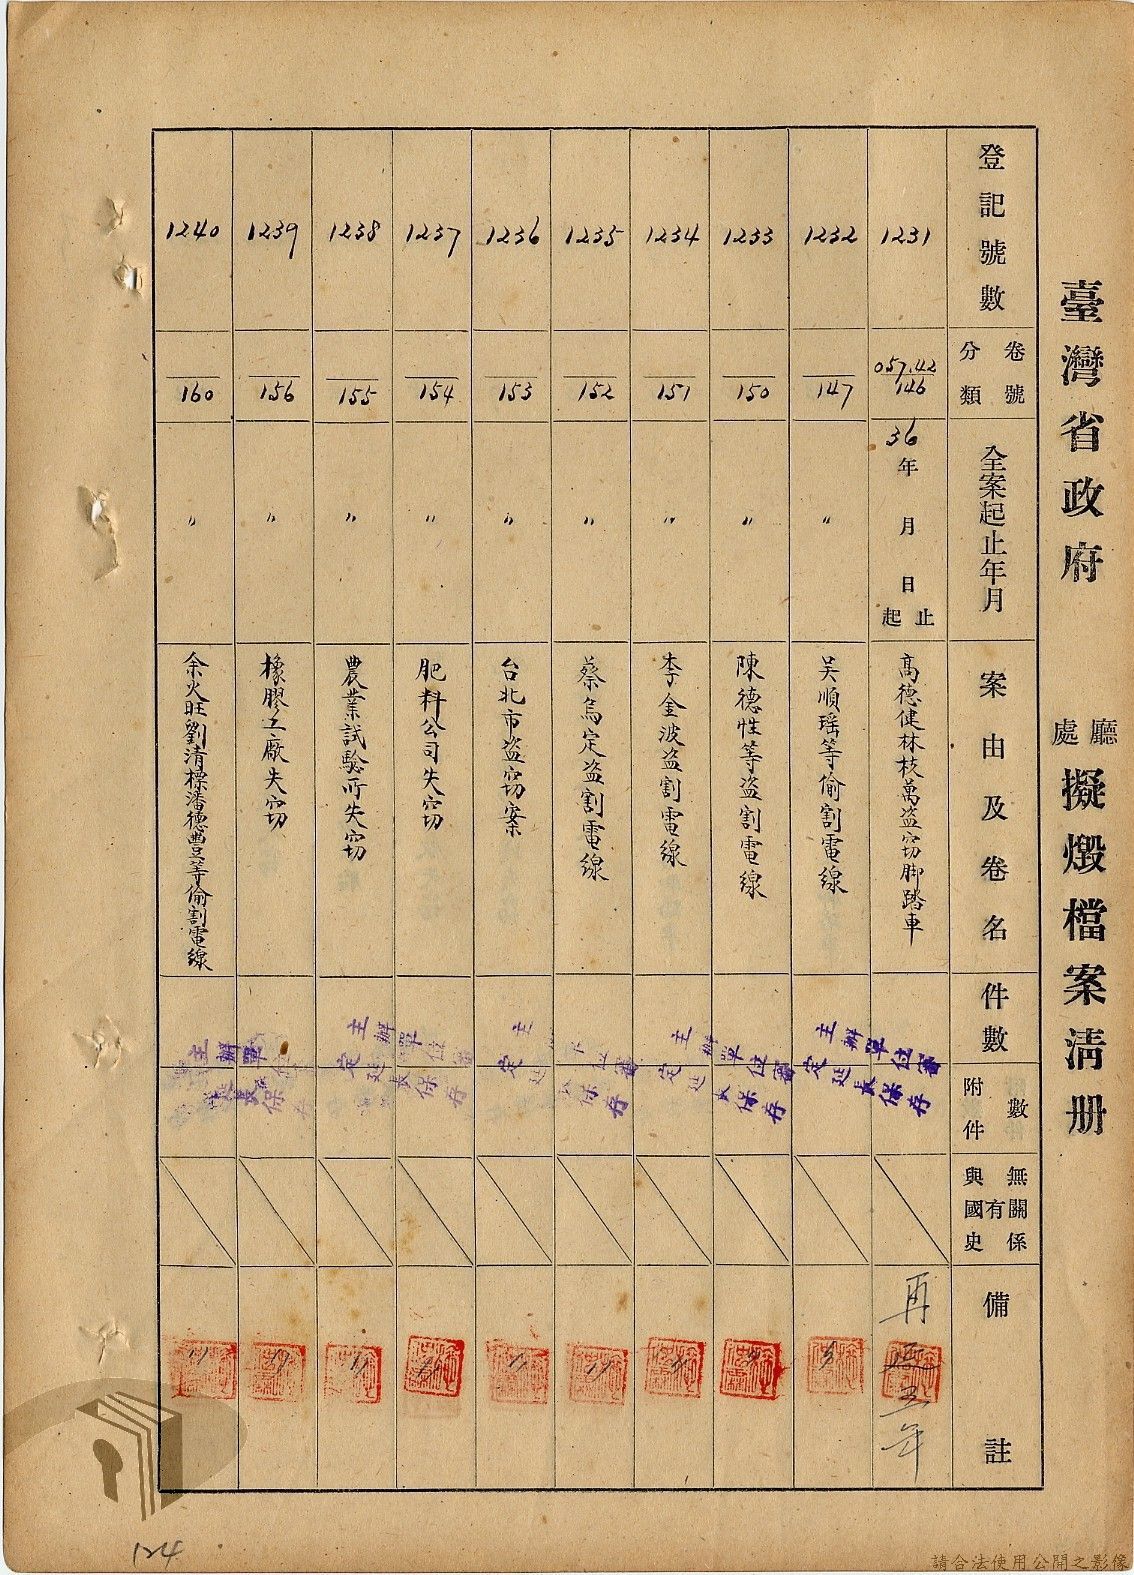 臺灣省政府 廳處 擬燬檔案清册
登記號數
卷號
分類
全案起止年月
案由及卷名
件數
附件數
與國史有無關係
備註
1231
057.42
146
36年 月 日 起止
高德健林枝萬盗窃脚踏車
主辦單位審定延長保存
再延五年
1232
147
〃
吴順瑶等偷割電線
〃
1233
150
〃
陳德性等盗割電線
主辦單位審定延長保存
〃
1234
151
〃
李金波盗割電線
〃
1235
152
〃
蔡烏定盗割電線
〃
1236
153
〃
台北市盗窃案
〃
1237
154
〃
肥料公司失窃
主辦單位審定延長保存
〃
1238
155
〃
農業試驗所失窃
〃
1239
156
〃
橡膠工廠失窃
主辦單位
〃
1240
160
〃
余火旺劉清標潘德豊等偷割電線
〃
124
請合法使用公開之影像